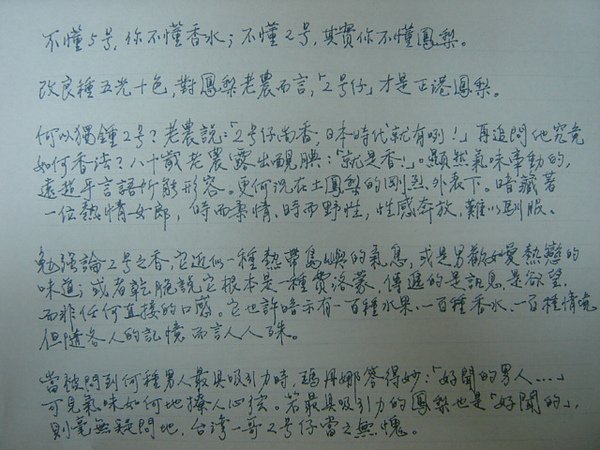 不懂5号，你不懂香水；不懂2号，其實你不懂鳳梨。
改良種五光十色，對鳳梨老農而言，「2号仔」才是正港鳳梨。
何以獨鍾2号？老農說：「2号仔尚香，日本時代就有咧！」再追問他究竟
如何香法？八十歲老農露出靦腆：「就是香！」顯然氣味牽動的，
遠超乎言語所能形容。更何況在土鳳梨的剛烈外表下，暗藏著
一位熱情女郎，時而柔情、時而野性，性感奔放，難以馴服。
勉強論2号之香，它近似一種熱帶島嶼的氣息，或是男歡女愛熱戀的
味道；或者乾脆說它根本是一種費洛蒙，傳遞的是訊息、是慾望，
而非任何直接的口感。它也許暗示有一百種水果、一百種香水、一百種情境
但隨各人的記憶而言人人殊。
當被問到何種男人最具吸引力時，瑪丹娜答得妙：「好聞的男人……」
可見氣味如何地撩人心弦。若最具吸引力的鳳梨也是「好聞的」，
則毫無疑問地，台湾一哥2号仔當之無愧。